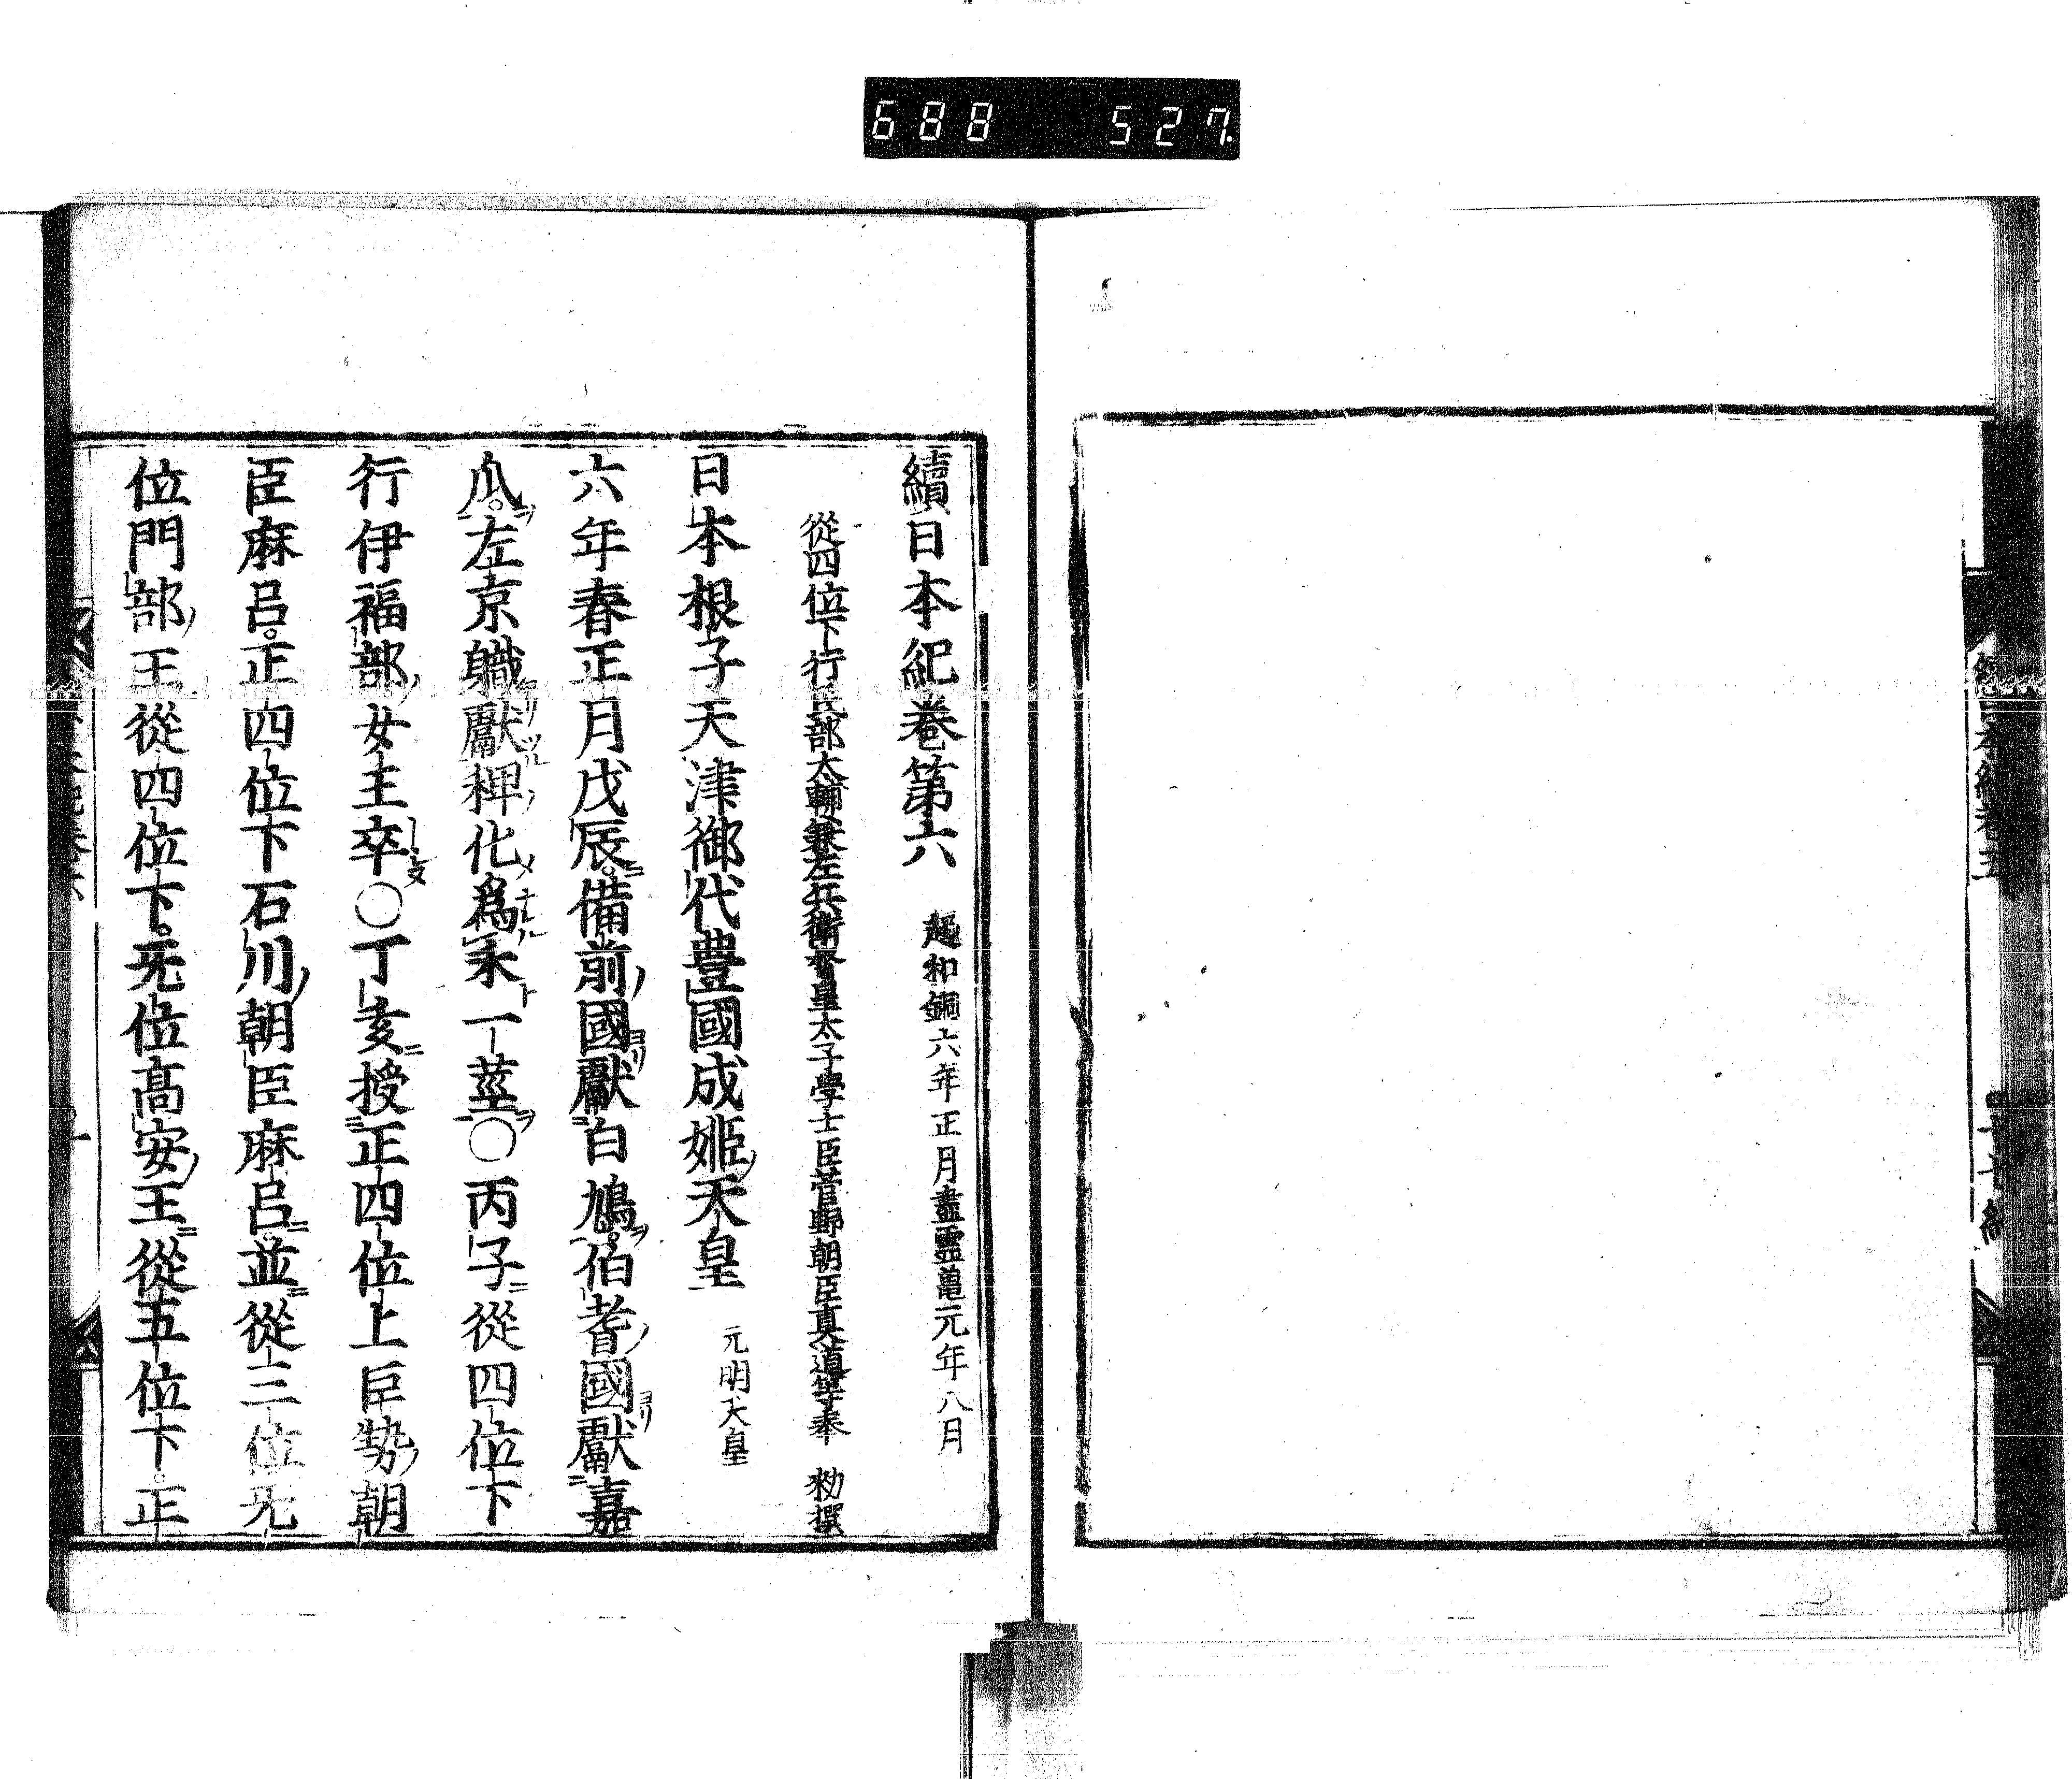 688 527.
續日本紀卷第六 起和銅六年正月盡靈龜元年八月
從四位下行民部大輔兼左兵衛督皇太子學士臣菅野朝臣真道等奉 勅撰
日本根子天津御代豊國成姬天皇 元明天皇
六年春正月戊辰。備前國獻白鳩。伯耆國獻嘉
瓜。左京職獻稗化爲禾一莖〇丙子從四位下
行伊福部女王卒〇丁亥授正四位上巨勢朝
臣麻呂。正四位下石川朝臣麻呂。並從三位无
位門部王從四位下。无位高安王從五位下。正